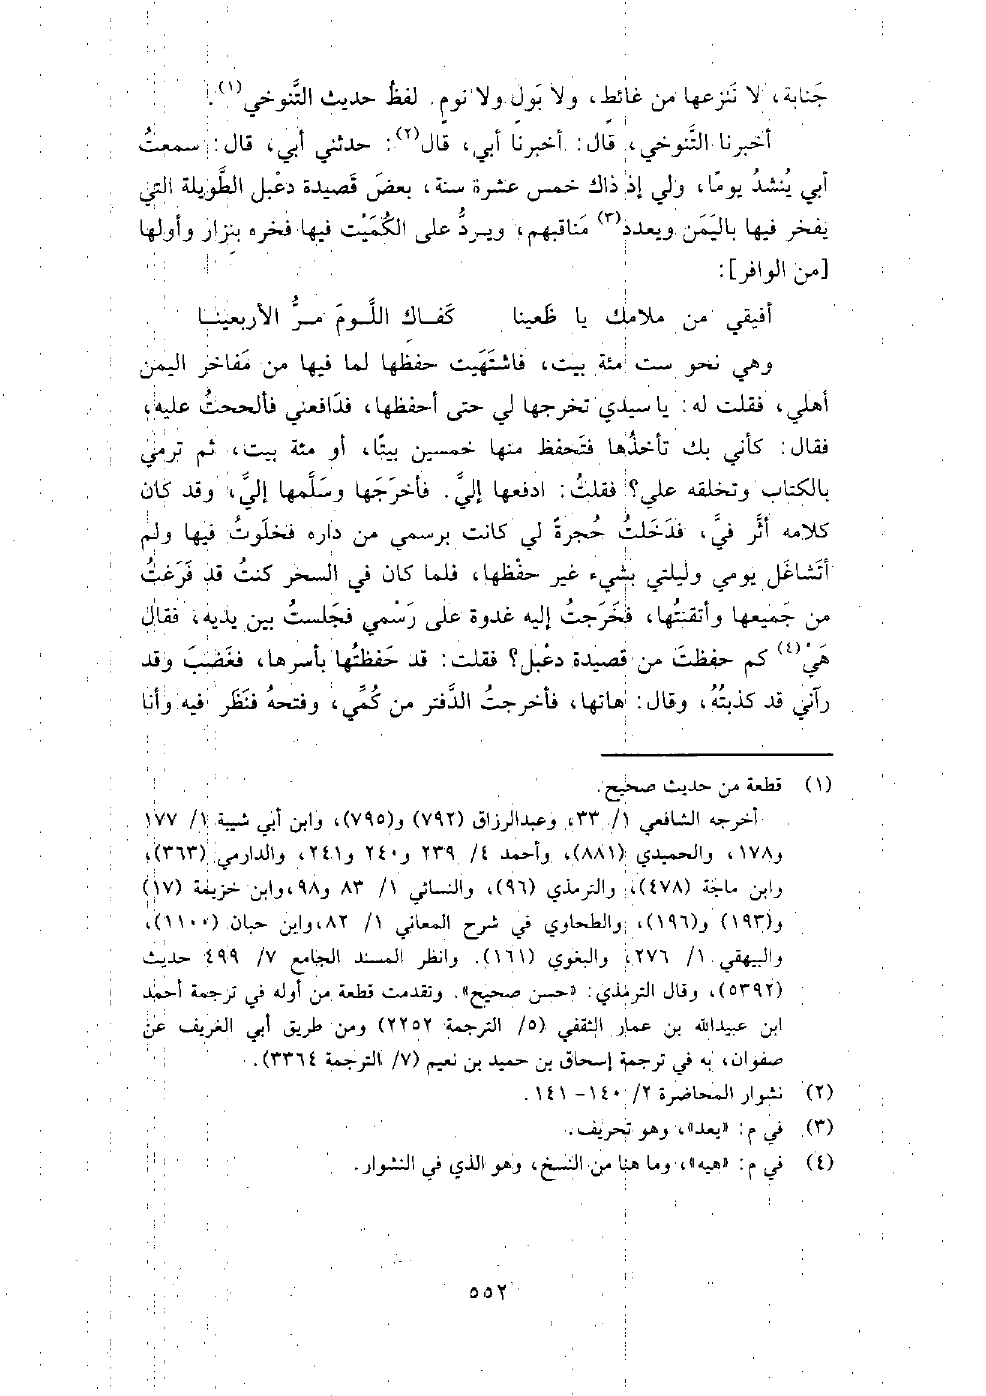 جَنابة، لا نَنزعها من غائطٍ، ولا بَولٍ ولا نومٍ. لفظُ حديث التَّنوخي(١).
أخبرنا التَّنوخي، قال: أخبرنا أبي، قال(٢): حدثني أبي، قال: سمعتُ
أبي يُنشدُ يومًا، ولي إذ ذاك خمس عشرة سنة، بعضَ قَصيدة دعْبل الطَّويلة التي
يفخر فيها باليَمَن ويعدد(٣) مَناقبهم، ويردُّ على الكُمَيْت فيها فخره بنزار وأولها
[من الوافر]:
أفيقي من ملامك يا ظَعينا كَفاك اللَّومَ مرُّ الأربعينا
وهي نحو ست مئة بيت، فاشتَهَيت حفظها لما فيها من مَفاخر اليمن
أهلي، فقلت له: يا سيدي تخرجها لي حتى أحفظها، فدَافعني فألححتُ عليه،
فقال: كأني بك تأخذُها فتَحفظ منها خمسين بيتًا، أو مئة بيت، ثم ترمي
بالكتاب وتخلقه علي؟ فقلتُ: ادفعها إليَّ. فأخرَجَها وسَلَّمها إليَّ، وقد كان
كلامه أثَّر فيَّ، فدَخَلتُ حُجرةً لي كانت برسمي من داره فخلَوتُ فيها ولم
أتَشاغَل يومي وليلتي بشيء غير حفْظها، فلما كان في السحر كنتُ قد فَرَغتُ
من جَميعها وأتقنتُها، فخَرَجتُ إليه غدوة على رَسْمي فجَلستُ بين يديه، فقال
هَيْ(٤) كم حفظتَ من قصيدة دعْبل؟ فقلت: قد حَفظتُها بأسرها، فغَضبَ وقد
رآني قد كذبتُهُ، وقال: هاتها، فأخرجتُ الدَّفتر من كُمِّي، وفتحهُ فنَظَر فيه وأنا
(١) قطعة من حديث صحيح.
أخرجه الشافعي ١/ ٣٣، وعبدالرزاق (٧٩٢) و(٧٩٥)، وابن أبي شيبة ١/ ١٧٧
و١٧٨، والحميدي (٨٨١)، وأحمد ٤/ ٢٣٩ و٢٤٠ و٢٤١، والدارمي (٣٦٣)،
وابن ماجة (٤٧٨)، والترمذي (٩٦)، والنسائي ١/ ٨٣ و٩٨،وابن خزيمة (١٧)
و(١٩٣) و(١٩٦)، والطحاوي في شرح المعاني ١/ ٨٢،وابن حبان (١١٠٠)،
والبيهقي ١/ ٢٧٦، والبغوي (١٦١). وانظر المسند الجامع ٧/ ٤٩٩ حديث
(٥٣٩٢)، وقال الترمذي: «حسن صحيح». وتقدمت قطعة من أوله في ترجمة أحمد
ابن عبيدالله بن عمار الثقفي (٥/ الترجمة ٢٢٥٢) ومن طريق أبي الغريف عن
صفوان، به في ترجمة إسحاق بن حميد بن نعيم (٧/ الترجمة ٣٣٦٤).
(٢) نشوار المحاضرة ٢/ ١٤٠-١٤١.
(٣) في م: «يعد»، وهو تحريف.
(٤) في م: «هيه»، وما هنا من النسخ، وهو الذي في النشوار.
٥٥٢